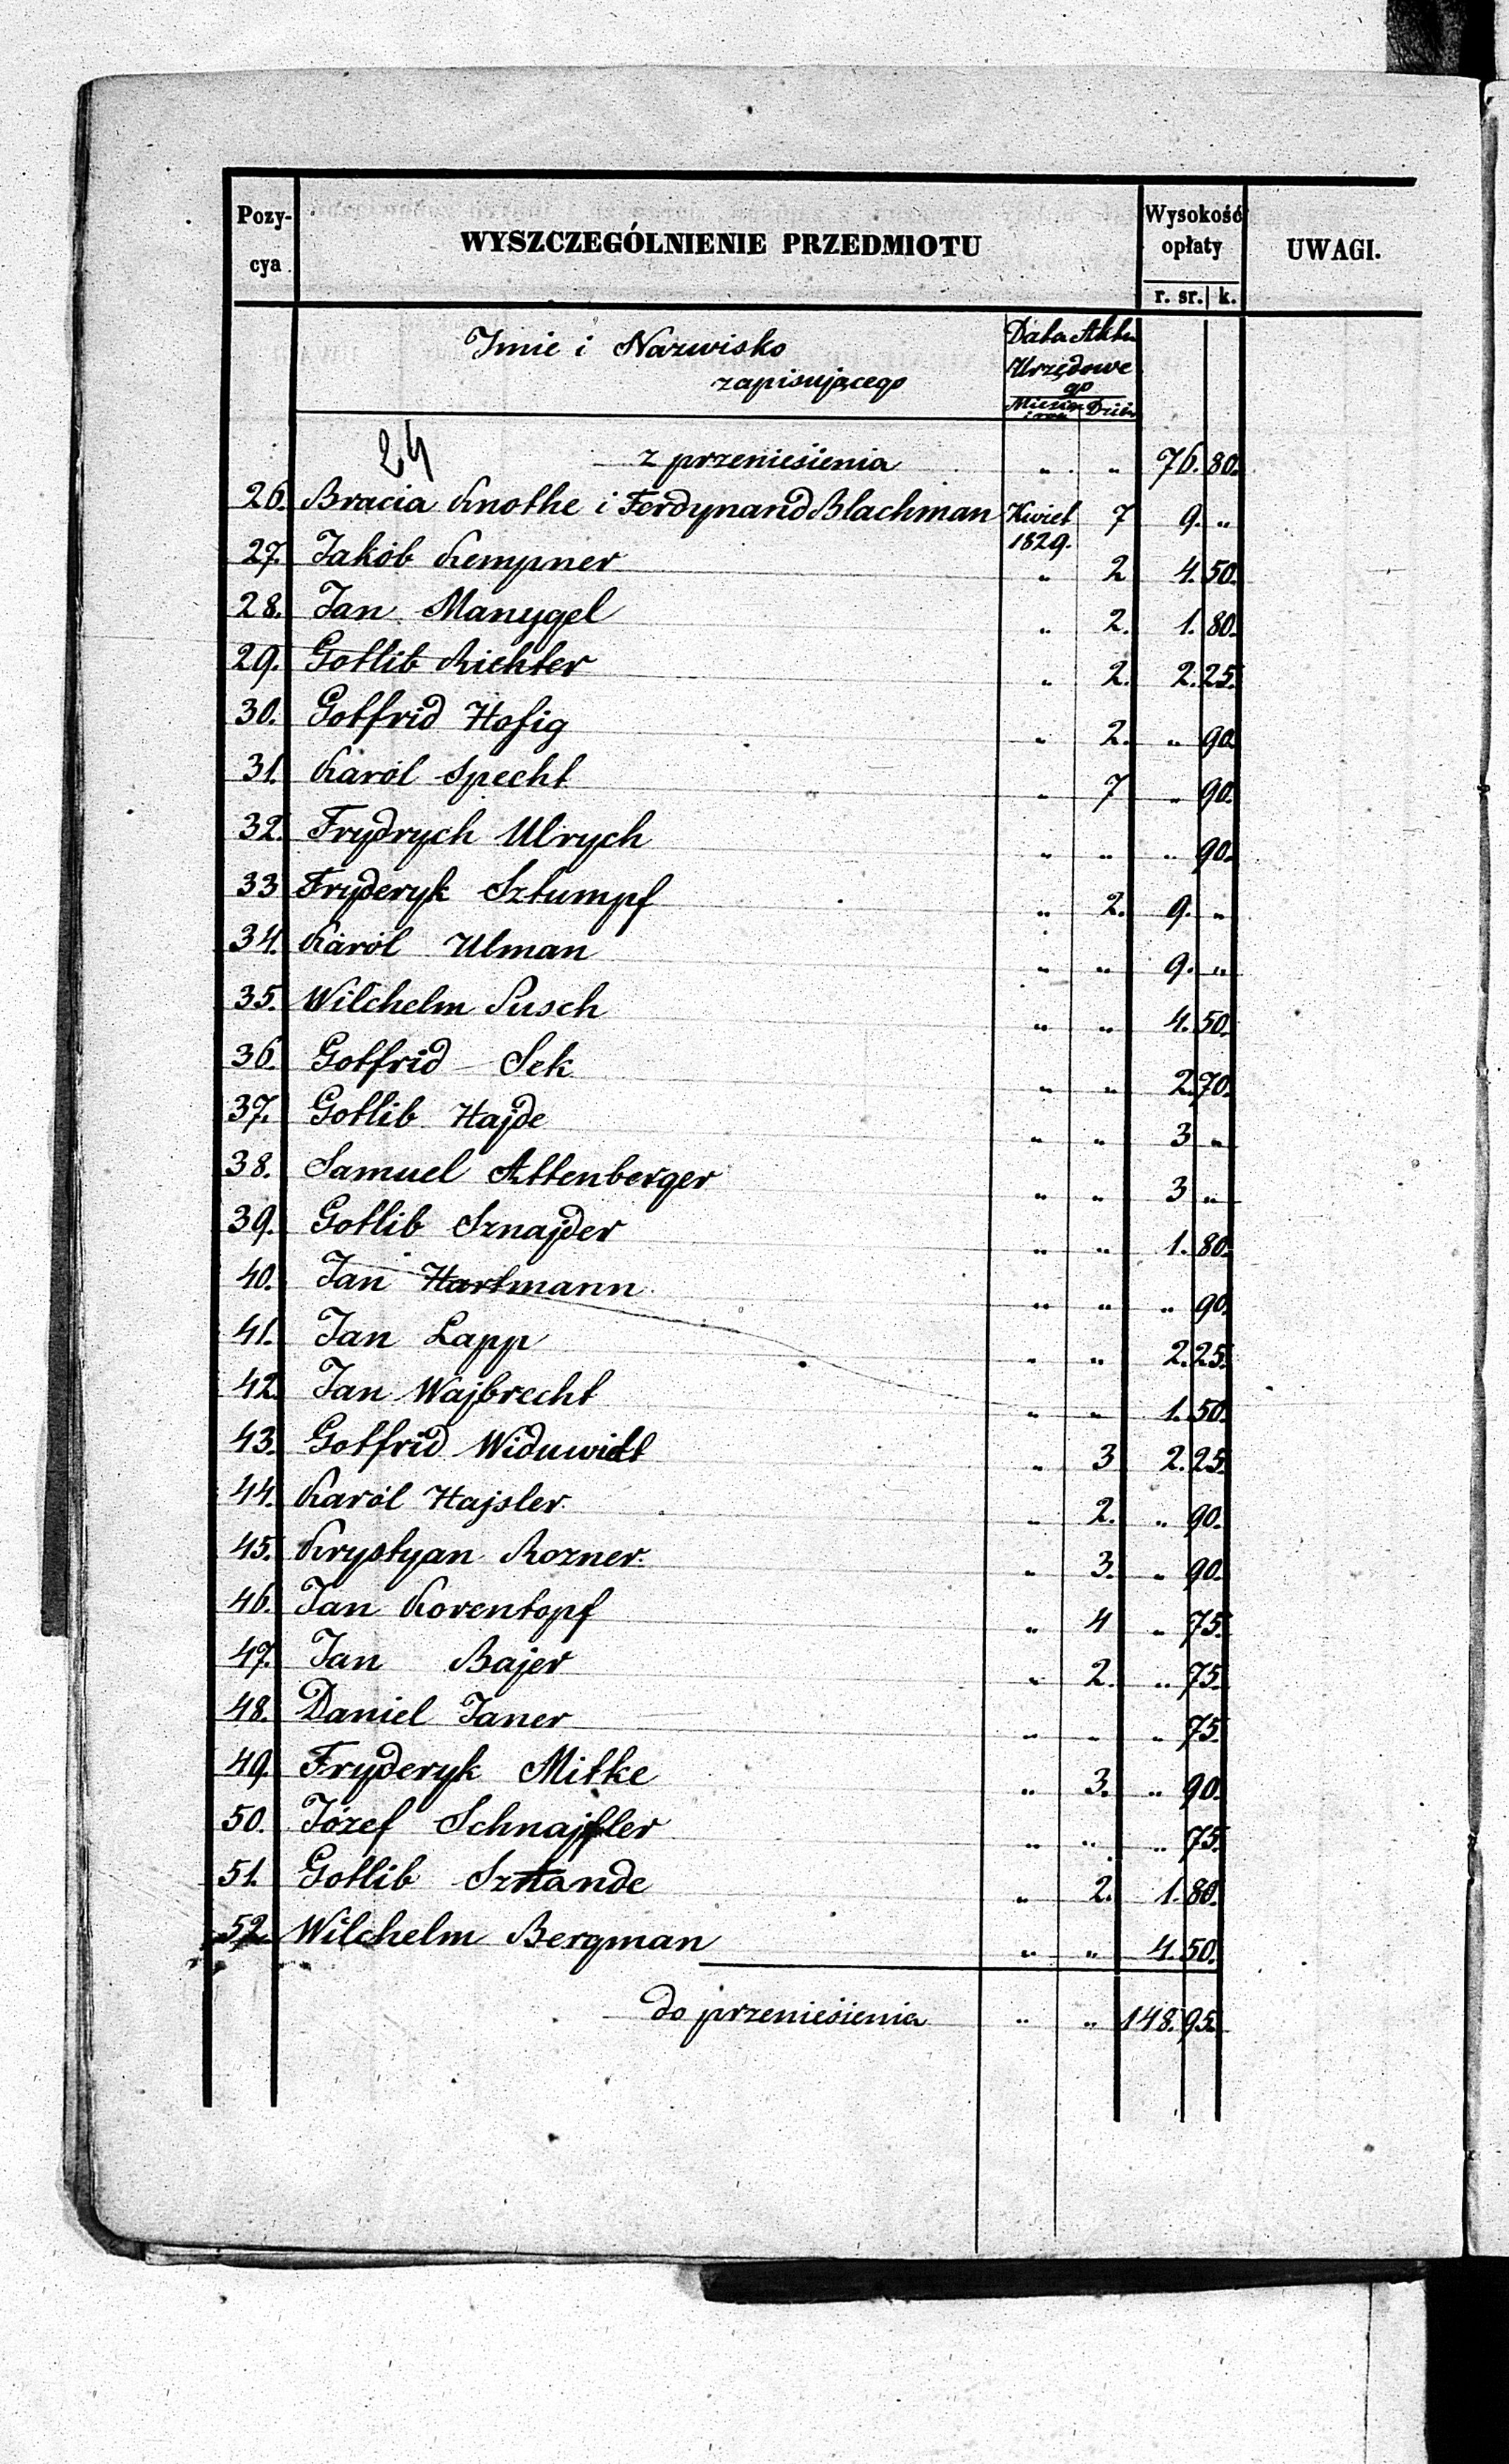 Pozy- cya WYSZCZEGÓLNIENIE PRZEDMIOTU Wysokość opłaty r. sr. k. UWAGI.
Imie i Nazwisko zapisującego Data Aktu Urzędowe go Dzień
24
z przeniesienia " " 76. 80.
26. Bracia Knothe i Ferdynand Blachman Kwiet 1829. 7 9. "
27. Jakób Kempner " 2 4. 50.
28. Jan Manygel " 2. 1. 80.
29. Gotlib Richter " 2. 2. 25.
30. Gotfrid Hofig " 2. " 90.
31. Karól Specht " 7 " 90.
32. Frydrych Ulrych " " " 90.
33 Fryderyk Sztumpf " 2. 9. "
34. Karól Ulman " " 9. "
35. Wilchelm Pusch " " 4. 50.
36. Gotfrid Sek " " 2. 70.
37. Gotlib Hajde " " 3 "
38. Samuel Attenberger " " 3 "
39. Gotlib Sznajder " " 1. 80.
40. Jan Hartmann " " " 90.
41. Jan Lapp " " 2. 25.
42. Jan Wajbrecht " " 1. 50.
43. Gotfrid Widuwidt " 3 2. 25.
44. Karól Hajsler " 2. " 90.
45. Krystyan Rozner " 3. " 90.
46. Jan Korentopf " 4 " 75.
47. Jan Bajer " 2. " 75.
48. Daniel Janer " " " 75.
49. Fryderyk Mitke " 3. " 90.
50. Józef Schnajfler " " " 75.
51. Gotlib " 2. 1. 80.
52. Wilchelm Bergman " " 4. 50.
do przeniesienia " " 148. 95.